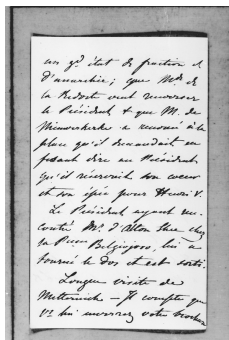 un gd état de fraction et
d'anarchie; que Mr de
la Redorte veut renverser
le Président & que M. de
Nieuwerkerke a renoncé à la
place qu'il demandait en
faisant dire au Président
qu'il réservait son cœur
et son épée pour Henri V.
Le Président ayant ren-
contré Mr d'Alton Shée chez
la Psse Belgiojoso, lui a
tourné le dos et est sorti.
Longue visite de
Metternich – Il compte que
Vs lui enverrez votre brochure